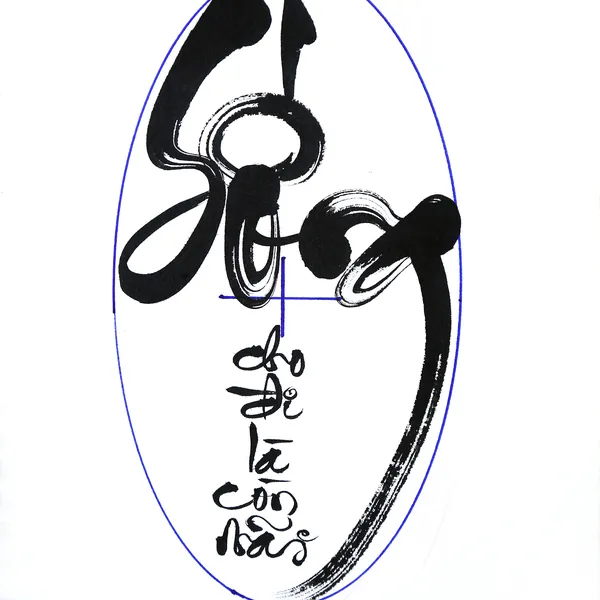 Sống
cho
đi
là
còn
mãi